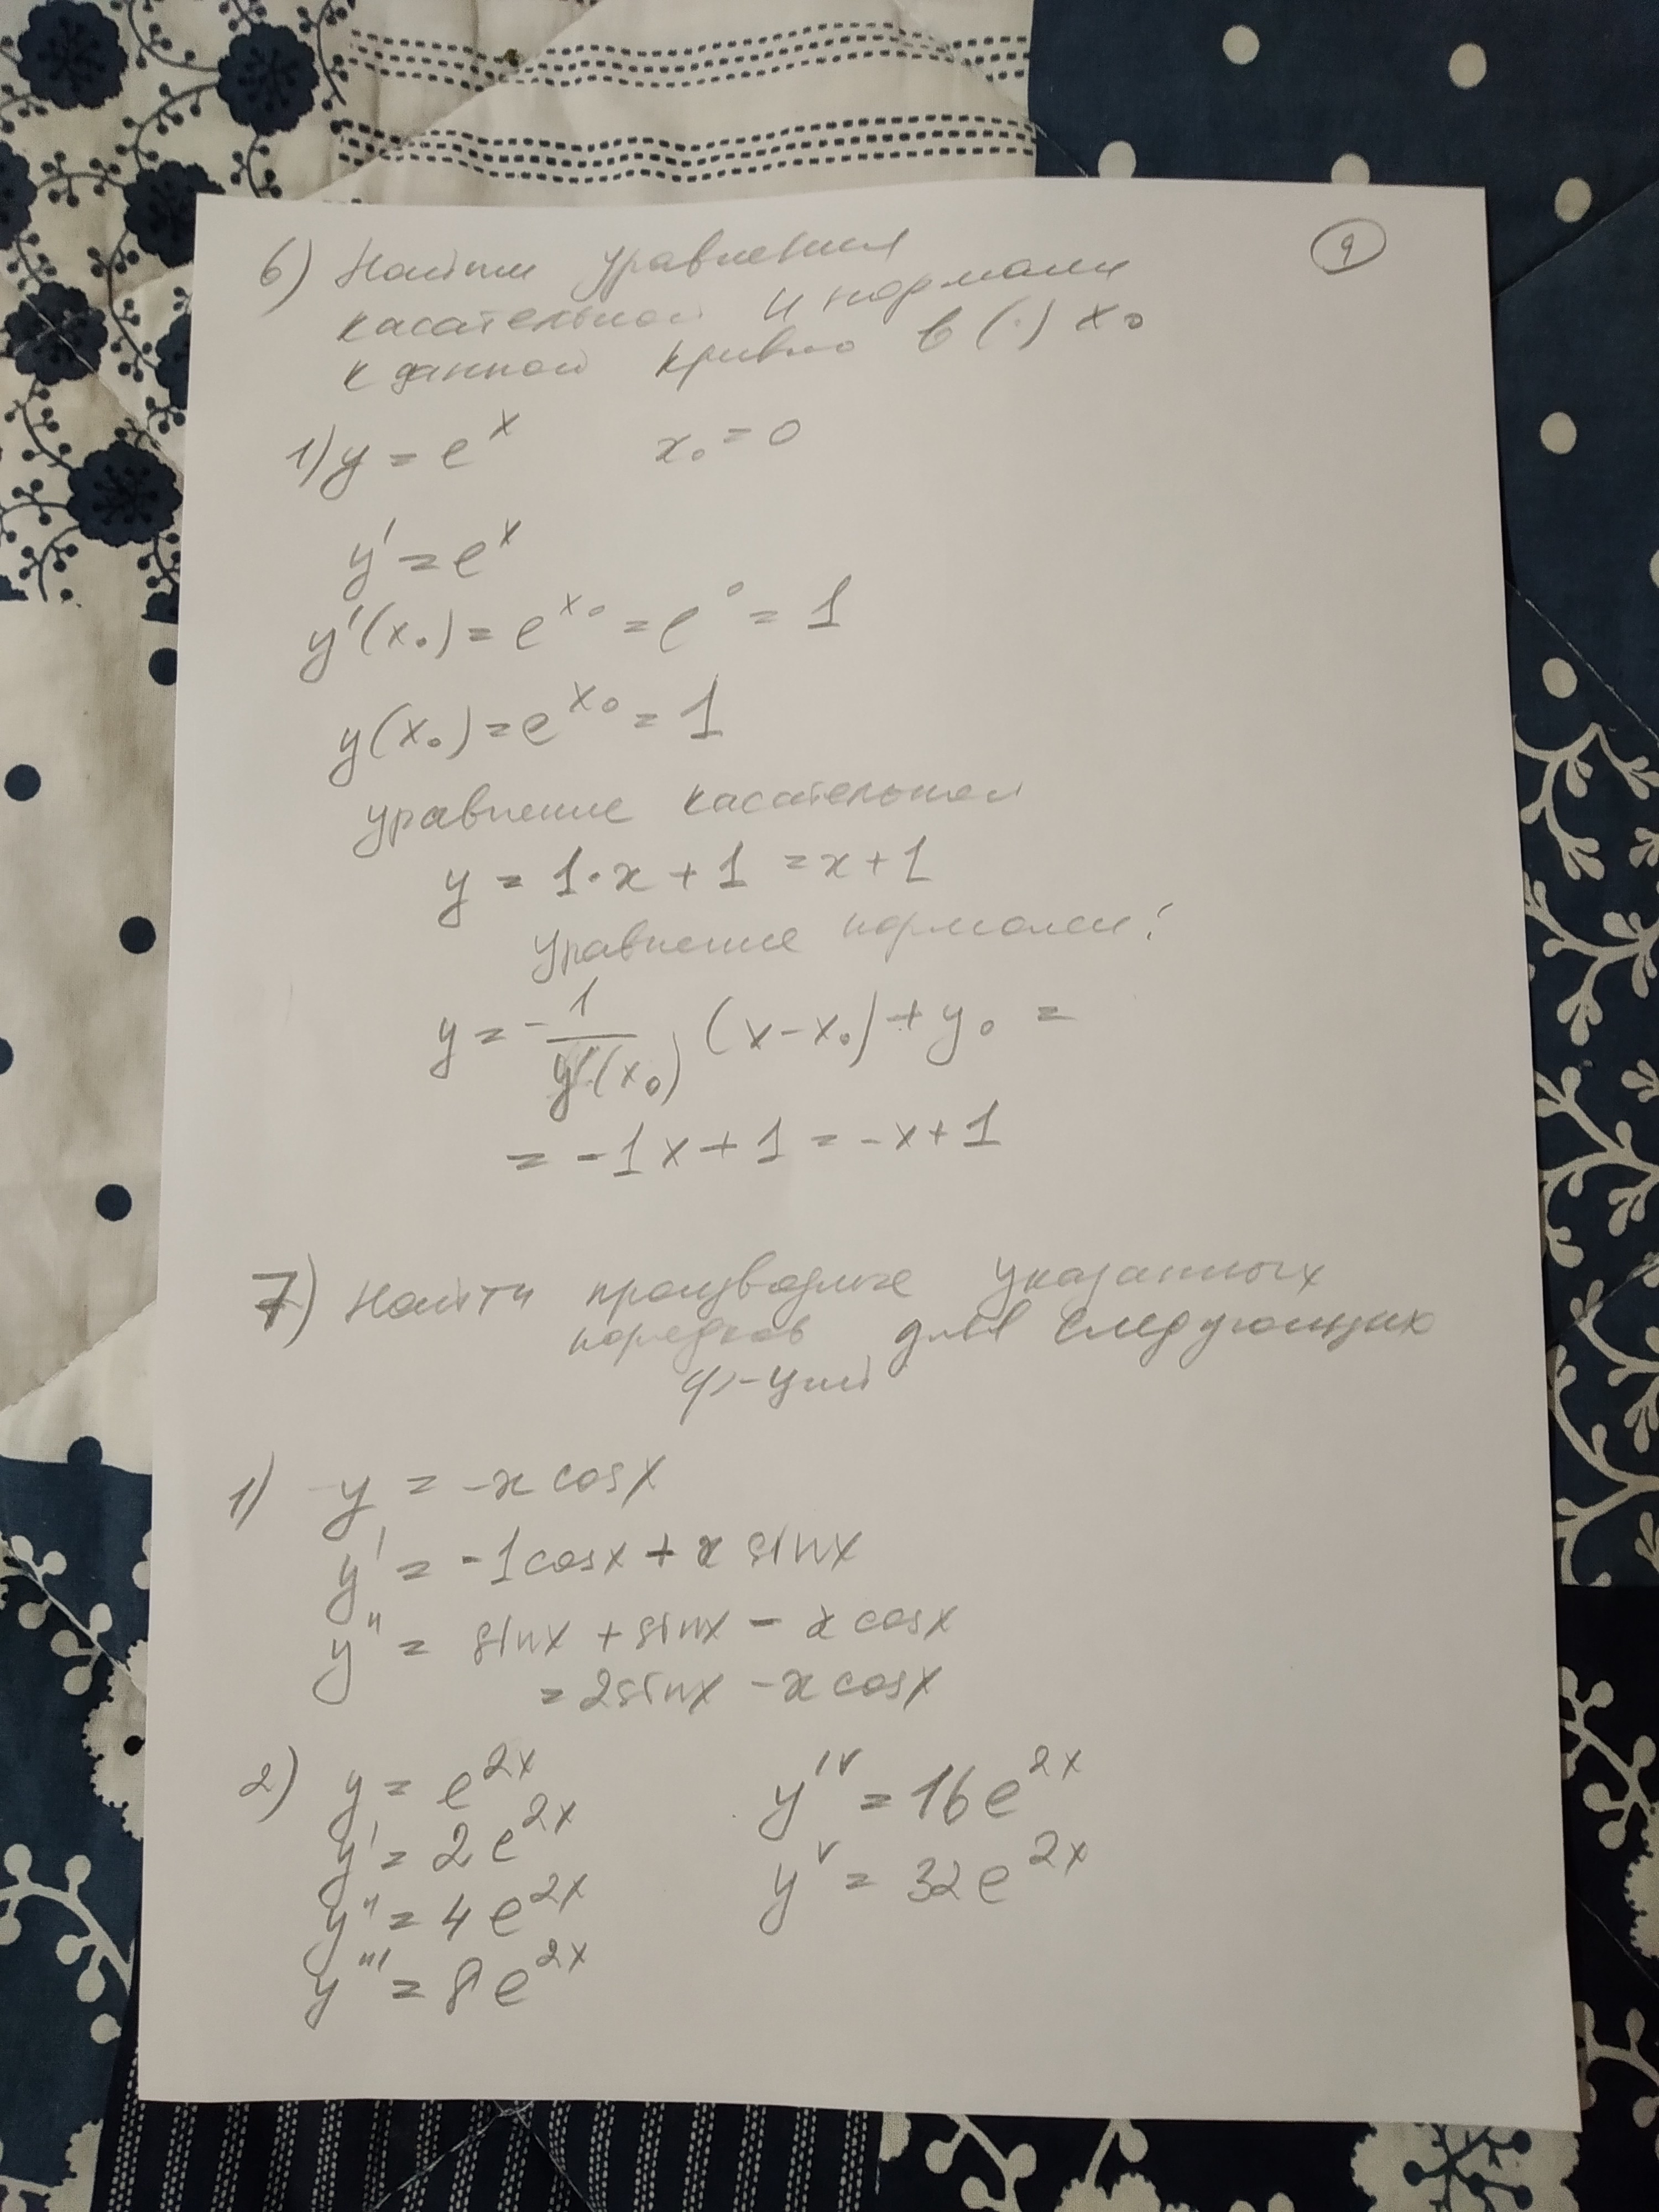 9
6) Найти уравнения
касательной и нормали
к данной кривой в (·) x₀
1) y = e^x x₀ = 0
y' = e^x
y'(x₀) = e^x₀ = e^0 = 1
y(x₀) = e^x₀ = 1
уравнение касательной
y = 1·x + 1 = x + 1
Уравнение нормали:
y = -1/y'(x₀) (x - x₀) + y₀ =
= -1x + 1 = -x + 1
7) Найти производные указанных
порядков для следующих
ф-ций
1) y = -x cosx
y' = -1cosx + x sinx
y'' = sinx + sinx - x cosx
= 2sinx - x cosx
2) y = e^2x
y' = 2e^2x
y'' = 4e^2x
y''' = 8e^2x
y^IV = 16e^2x
y^V = 32e^2x